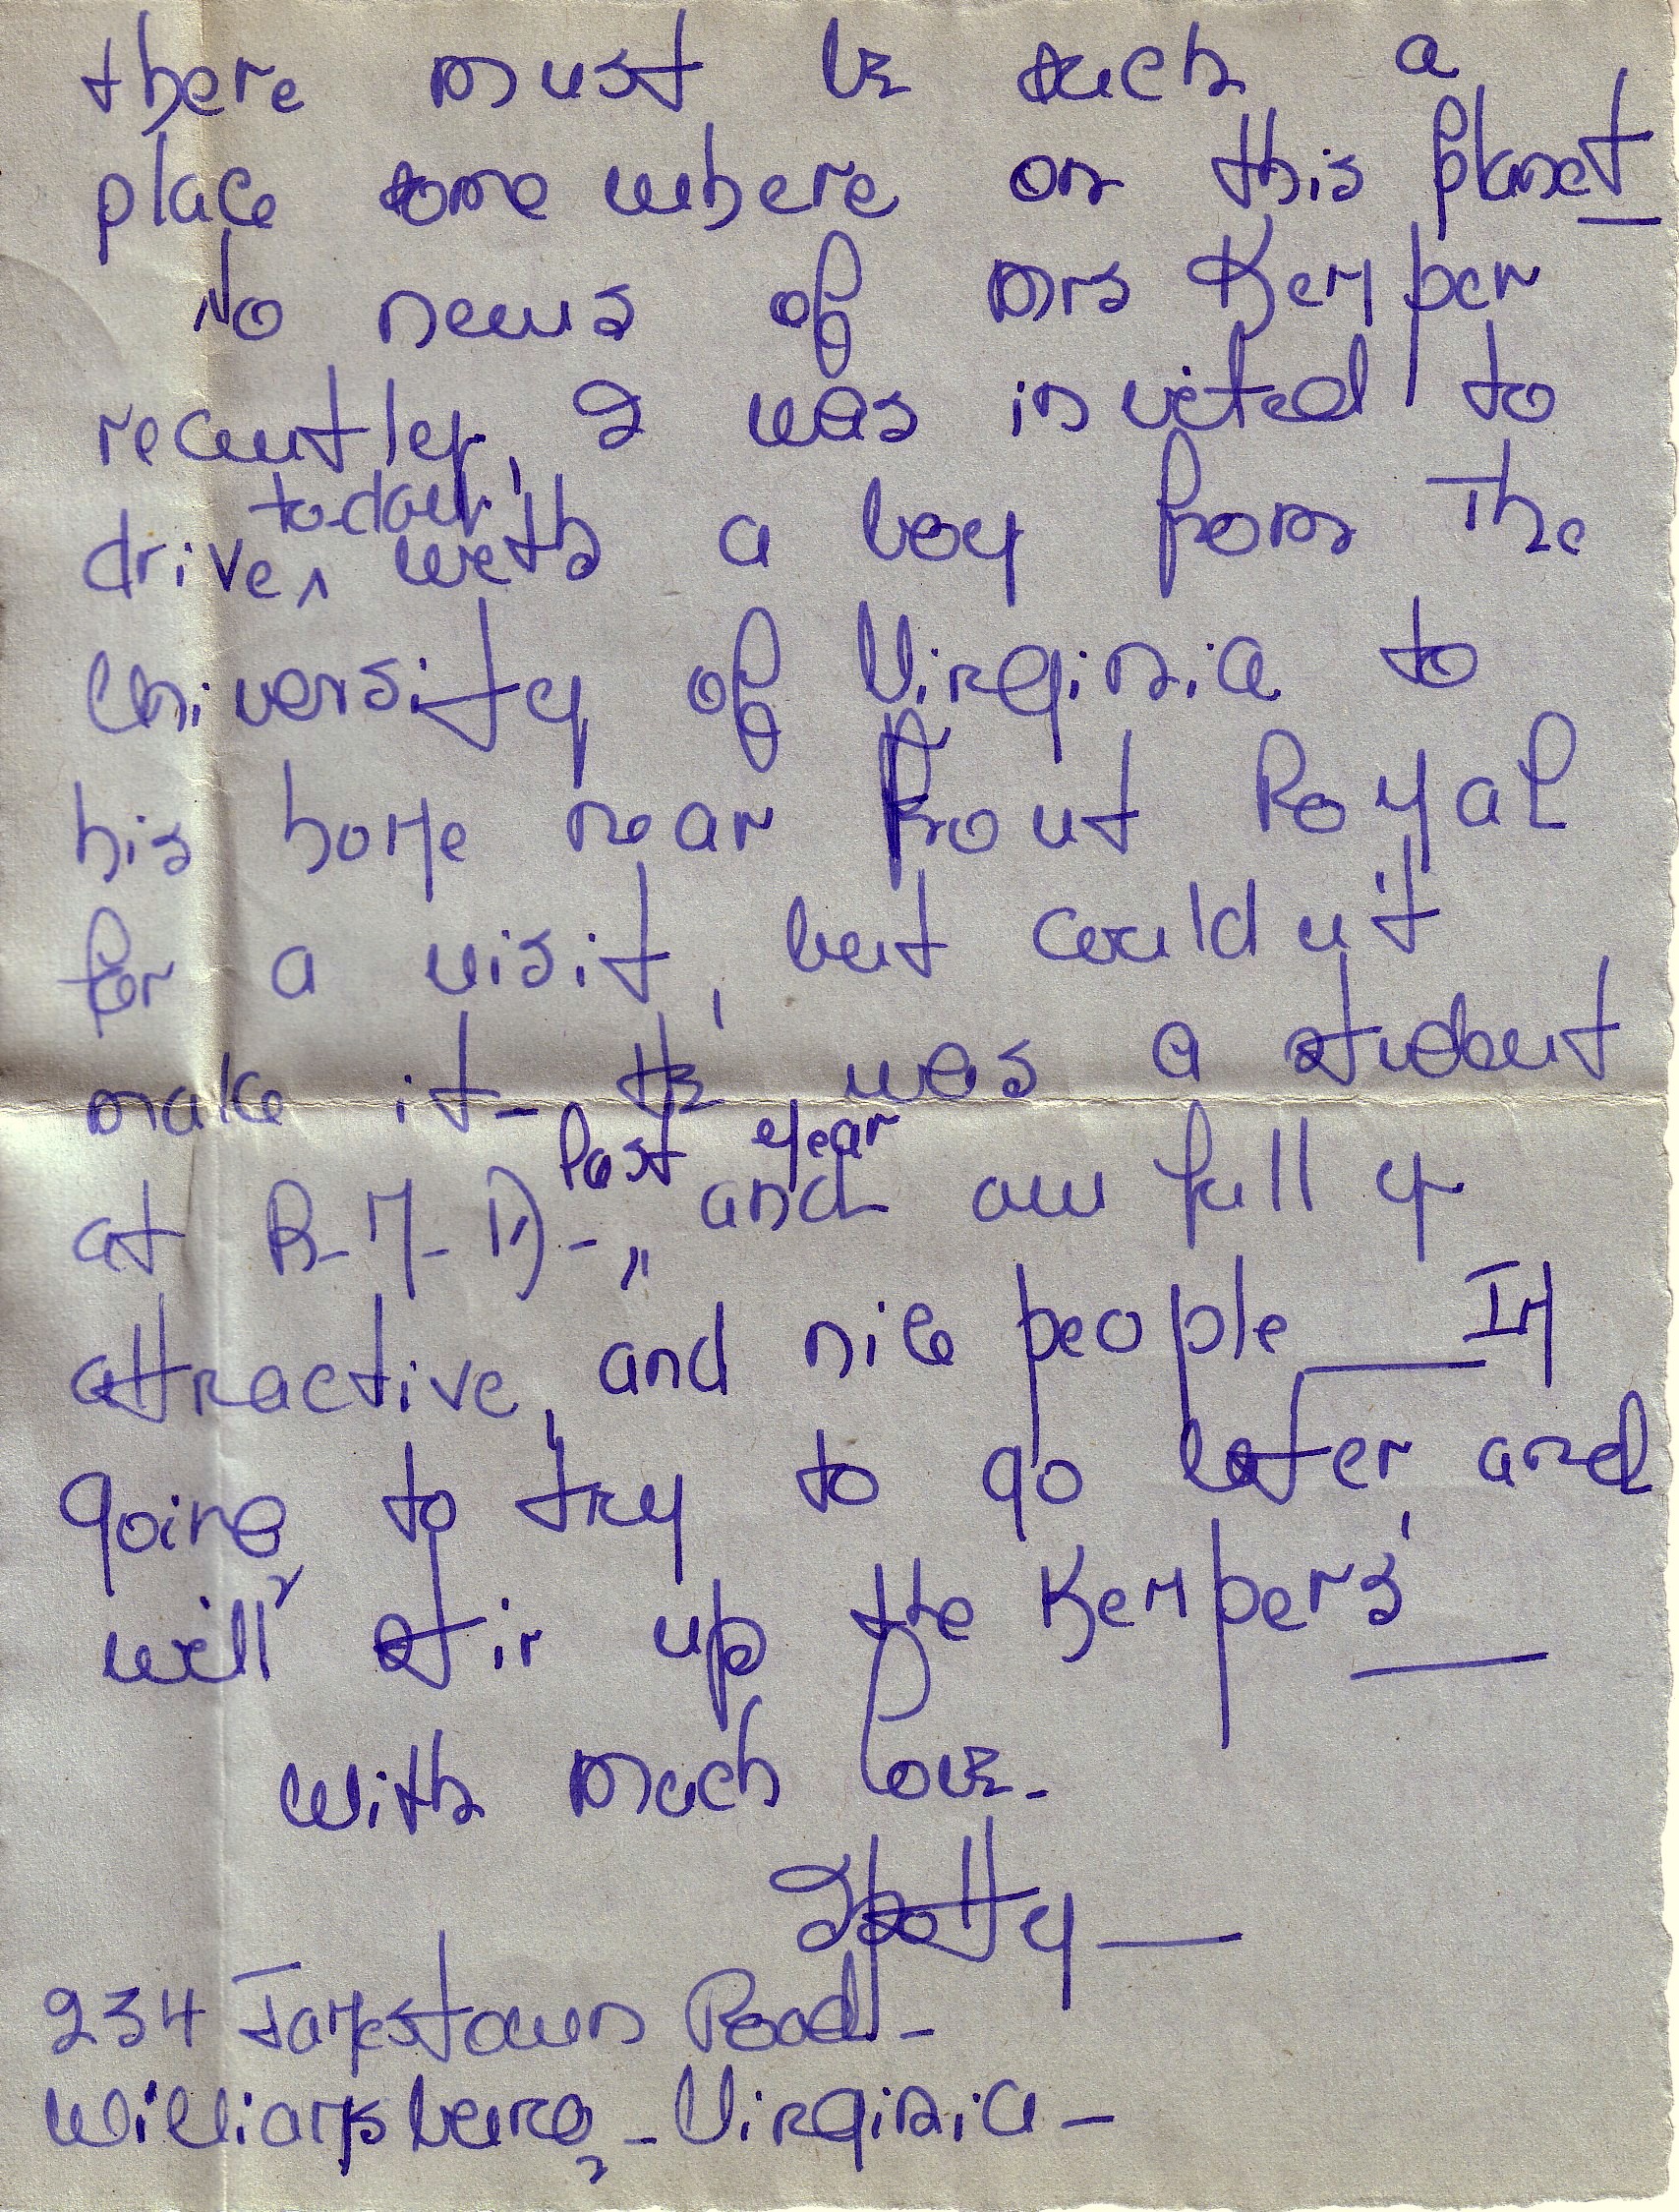 there must be such a
place some where on this planet_
No news of Mrs Kemper
recently, I was invited to
to-day,
drive, with a boy from The
University of Virginia to
his home near Front Royal
for a visit, but couldn't
make it_ He was a student
last year
at R_M_A_, and awfully
attractive, and nice people__ I'm
going to try to go later, and
will stir up the Kempers'__
With much love_
234 Jamestown Road_
Williamsburg_Virginia_